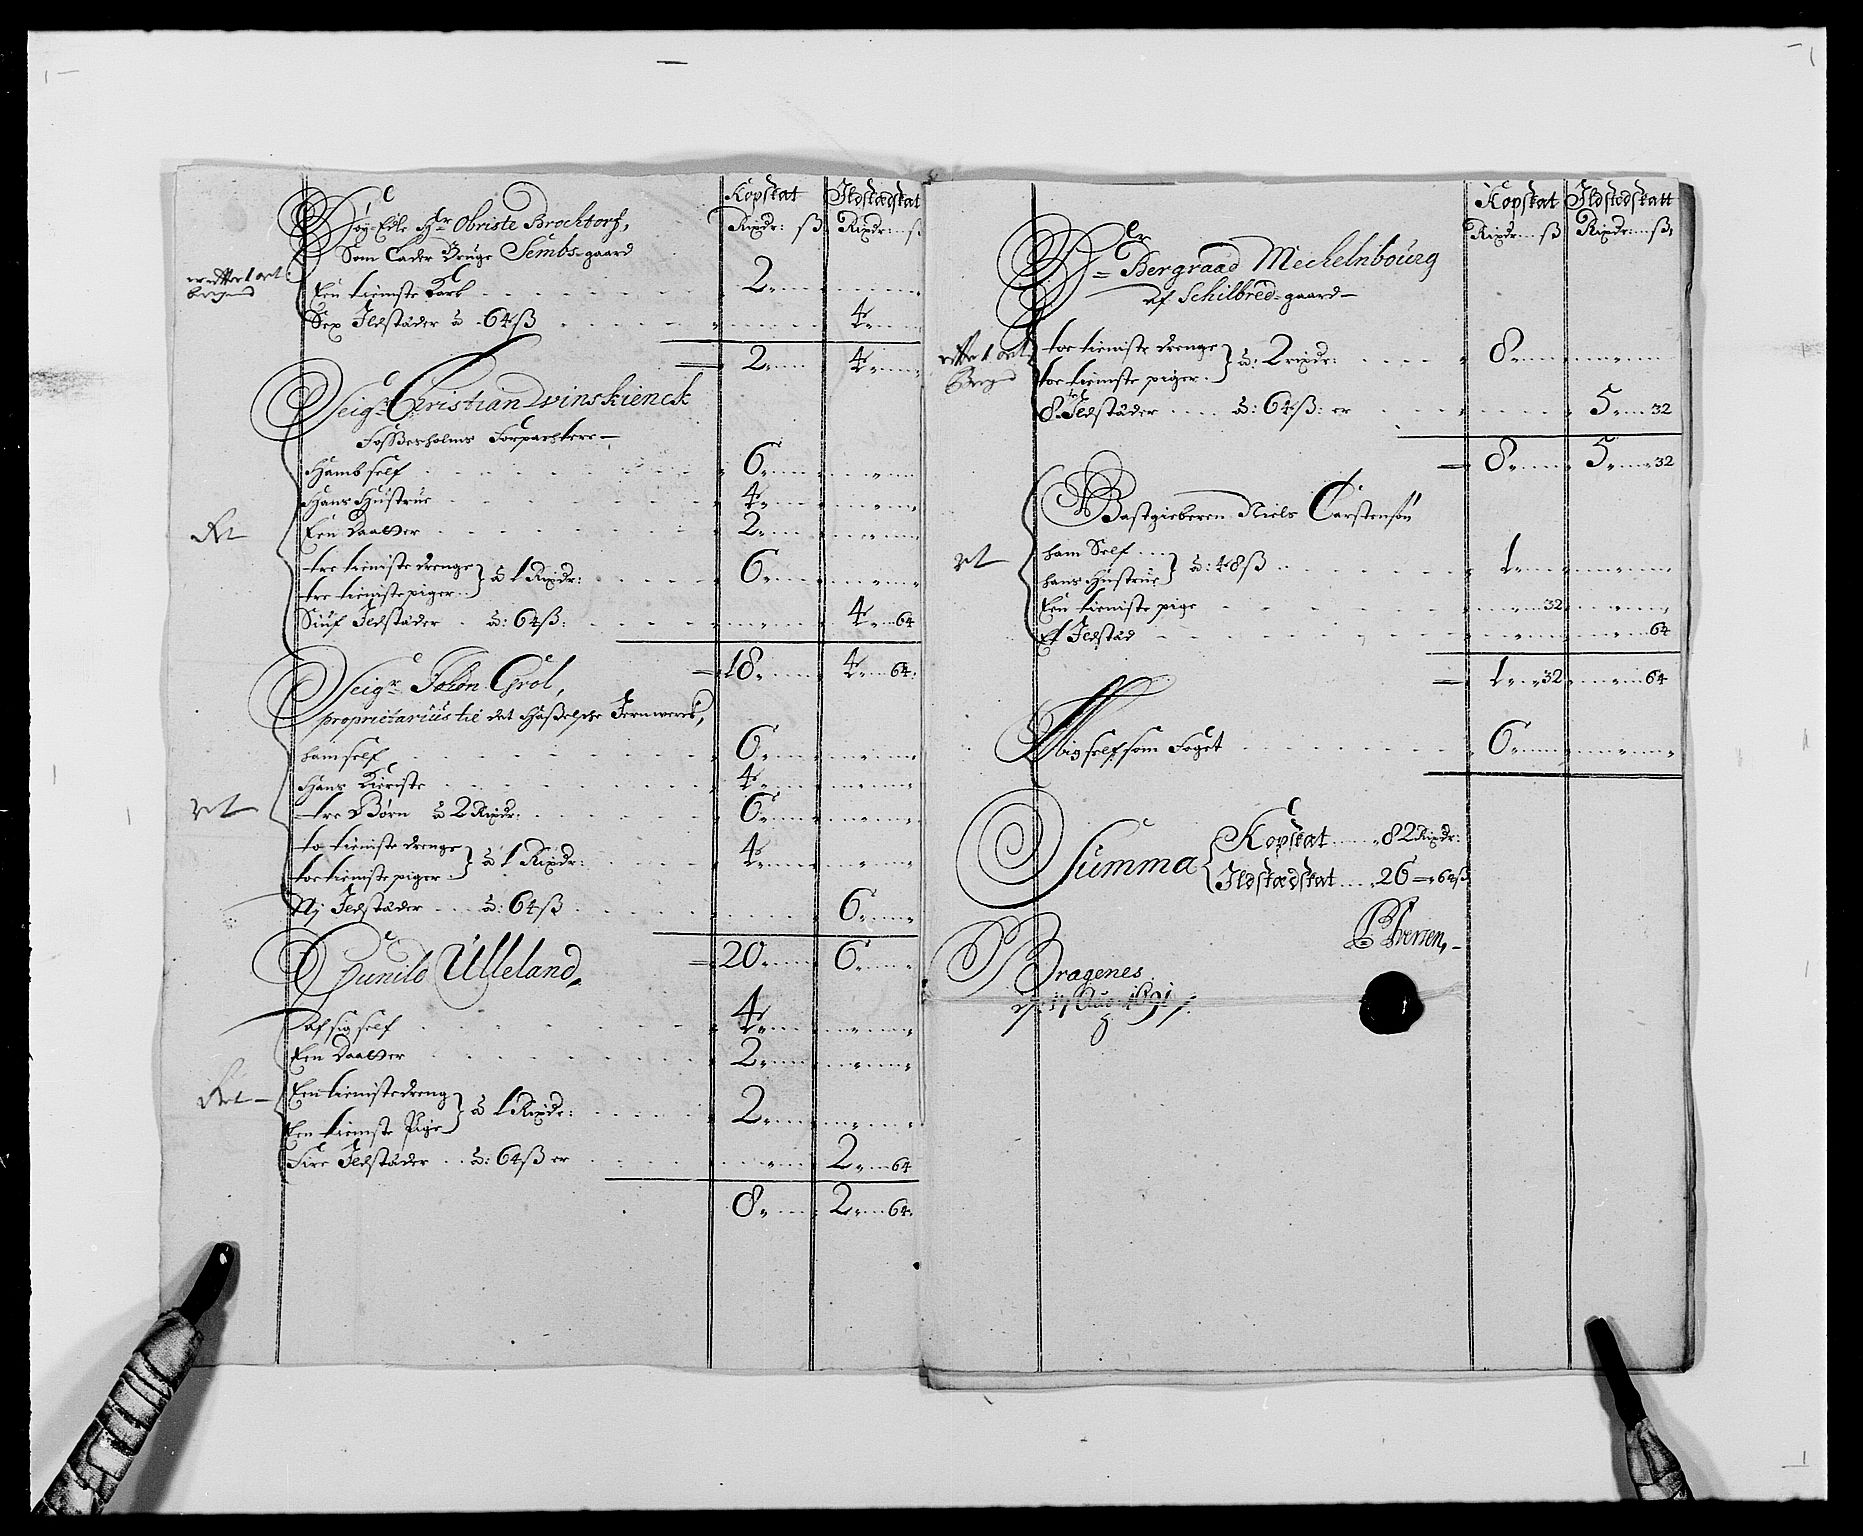 Kopskat Ildstædskat
Rixdr: ß Rixdr: ß
Høy-Edle Hr Obriste Brochtorf,
Som Lader Bruge Sembs-gaard
Een tieniste Karl 2
Sex Ildstæder à 64ß 4
2 4
Seigr. Christian
Fossesholms Forpachtere
Hamb self 6
Hans Hustrue 4
Een Daatter 2
tre tieniste drenge
tre tieniste piger } à 1 Rixdr: 6
Siuf Ildstæder à: 64ß: 4 64
18 4 64
Seigr. Johan Grol,
proprietarius til det Hasselsche Jernwerck,
ham self 6
Hans Kieriste 4
tre Børn à 2 Rixdr: 6
to tieniste drenge
toe tieniste piger } à 1 Rixdr: 4
Nj Ildstæder à: 64ß 6
20 6
Gunild Ulleland
af sig self 4
Een Daatter 2
Een tieniste dreng
Een tieniste Pige } à 1 Rixdr: 2
Fire Ildstæder à: 64ß er 2 64
8 2 64
Ret
ret
Ret
Kopskat Ildstædskatt
Rixdr ß Rixdr: ß
Hr Bergraad Mechelnbourg
af Schilbred-gaard
toe tieniste drenge
toe tieniste piger } à: 2 rixdr: 8
8 Ildstæder à: 64ß: er 5 32
8 5 32
Gastgieberen Niels Carstensøn
ham Self
hans Hustrue } à: 48ß 1
Een tieniste pige 32
Et Ildstæd 64
1 32 64
Mig self som Foget 6
ret
Summa { Kopskat 82 Rixdr:
Ildstædskat 26 64ß
Iversen,
Bragenes
17 Aug 1691